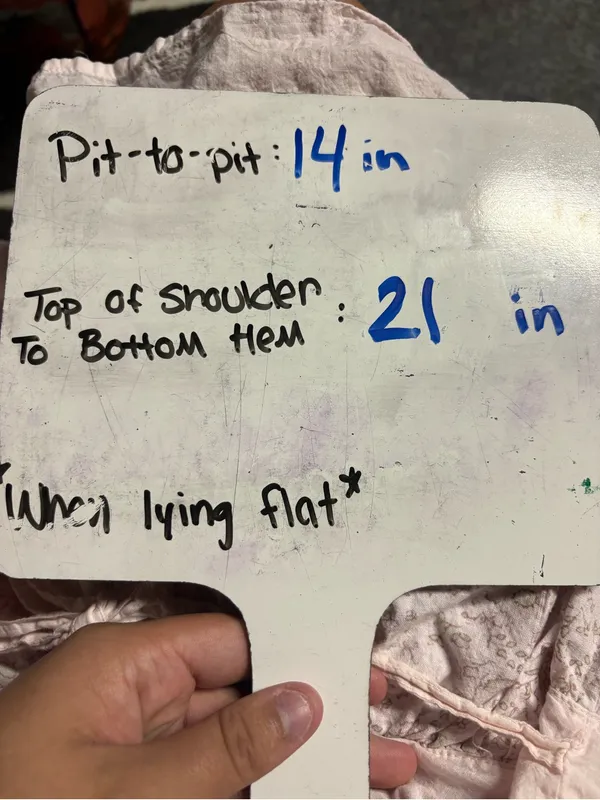 Pit-to-pit: 14 in
Top of Shoulder
To Bottom Hem : 21 in
*When lying flat*